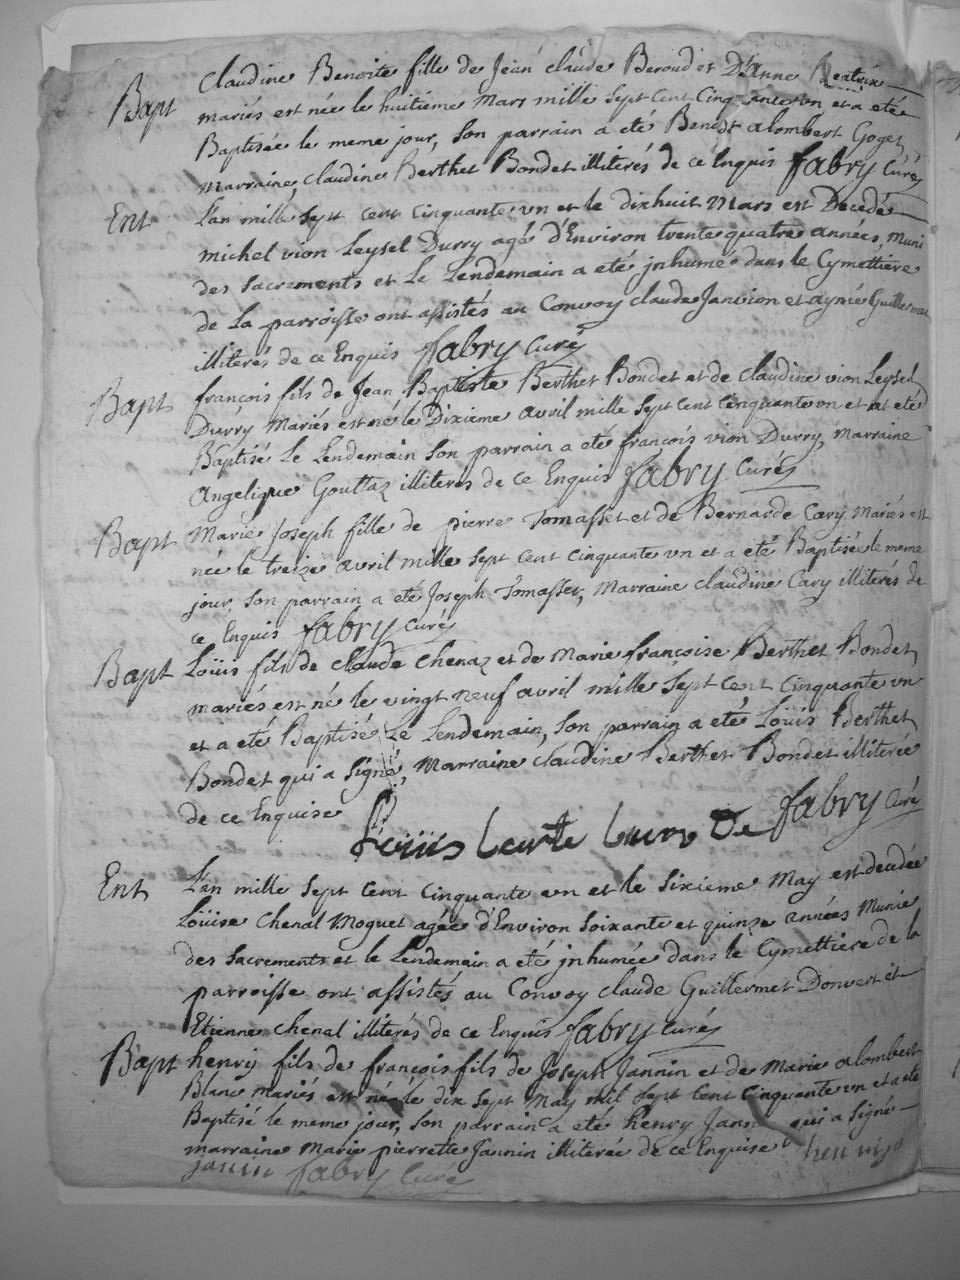 Bapt Claudine Benoite fille de Jean claude Beroud et D'Anne Beatrix
mariés est née le huitiéme Mars mille sept cent Cinquante un et a eté
Baptisée le meme jour, Son parrain a eté Benoit alombert Goget
Marraine Claudine Berthet Bondet illiterés de ce Enquis fabry Curé
Ent L'an mille Sept cent Cinquante vn et le dixhuit Mars est Decedé
michel vion Leysel Durry agé d'Environ trente quatre années, Muni
des Sacrements et Le Lendemain a eté jnhumé dans le Cymettiere
de La parroisse ont assistés au Convoy claude Janvion et aymé Guillermet
illiterés de ce Enquis fabry Curé
Bapt françois fils de Jean Baptiste Berthet Bondet et de Claudine vion Leysel
Durry Mariés est né le Dixieme avril mille Sept Cent Cinquante vn et at eté
Baptisé Le Lendemain Son parrain a eté françois vion Durry, Marraine
Angelique Gouttaz illiteres de ce Enquis fabry Curé
Bapt Marie Joseph fille de pierre Tomasset et de Bernarde Cary Mariés est
née le treize avril mille Sept Cent Cinquante vn et a eté Baptisée le meme
jour, Son parrain a eté Joseph Tomasset, Marraine Claudine Cary illiterés de
ce Enquis fabry Curé
Bapt Loüis fils de Claude Chenaz et de Marie françoise Berthet Bondet
mariés est né le vingt neuf avril mille Sept Cent Cinquante vn
et a eté Baptisé Le Lendemain, Son parrain a eté Loüis Berthet
Bondet qui a Signé, Marraine Claudine Berthet Bondet illiterée
de ce Enquise Louis fabry Curé
Ent L'an mille Sept Cent Cinquante vn et le Sixieme May est decedée
Loüise Chenal Moguet agée d'Environ Soixante et quinze années Munie
des Sacrements et le Lendemain a eté jnhumée dans le Cymettiere de la
parroisse ont assistés au Convoy Claude Guillermet Donvert et
Etienne Chenal illiterés de ce Enquis fabry Curé
Bapt henry fils de françois fils de Joseph Jannin et de Marie alombert
Blanc mariés est né le dix Sept May mil Sept Cent Cinquante vn et a eté
Baptisé le meme jour, Son parrain a eté henry Jannin qui a Signé
marraine Marie pierrette Jannin illiterée de ce Enquise henry
janin fabry Curé